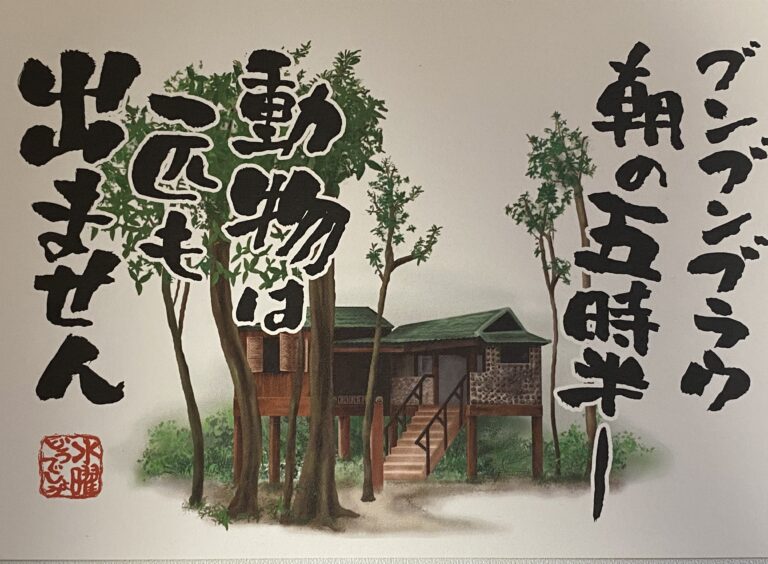 ブンブンブラウ
朝の五時半ー
動物は
一匹も
出ません
水曜
どうでしょう